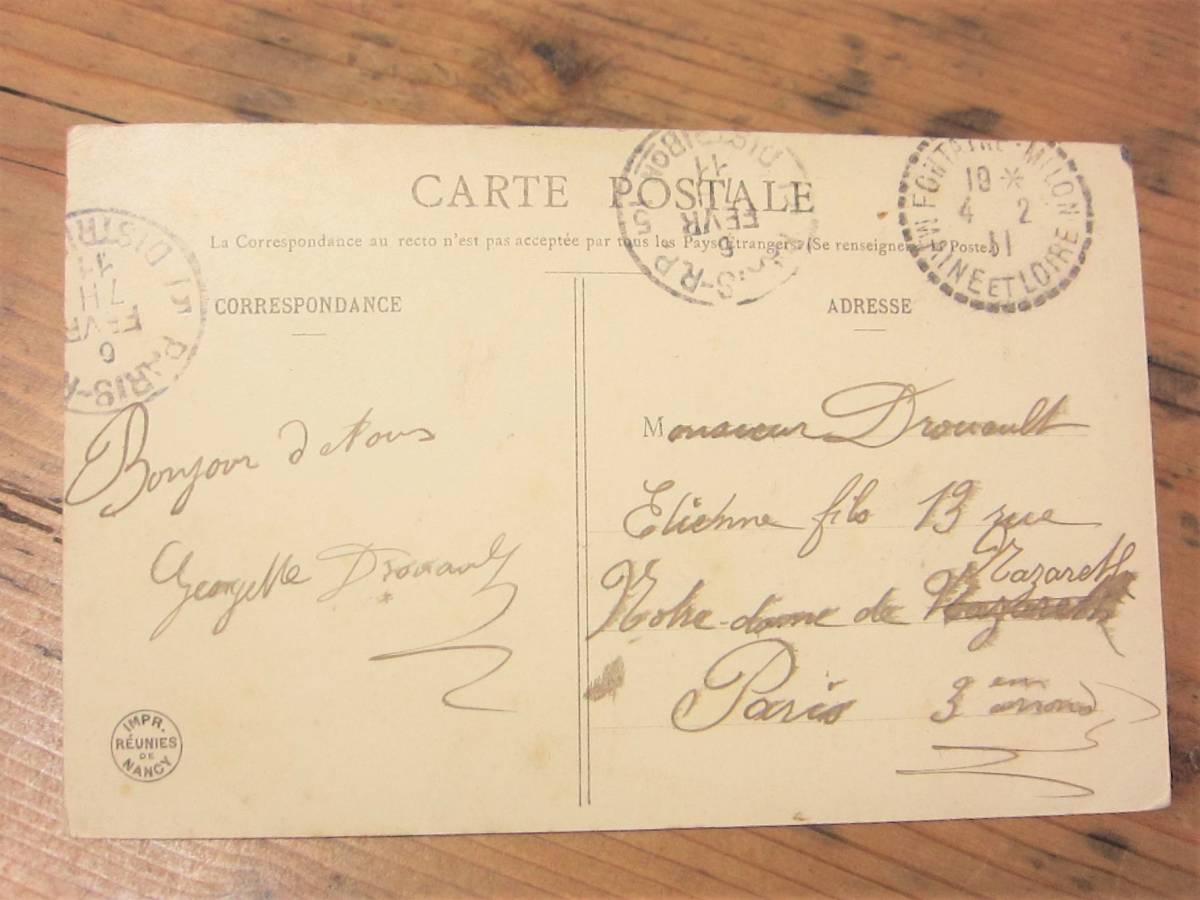 CARTE POSTALE
La Correspondance au recto n'est pas acceptée par tous les Pays Étrangers. (Se renseigner à la Poste.)
CORRESPONDANCE
ADRESSE
Bonjour de Nous
Georgette Drouault
Monsieur Drouault
Etienne fils 13 rue
Nazareth
Notre-dame de Nazareth
Paris 3 em arrond
FONTAINE-MILON
MAINE ET LOIRE
18 *
4 2
11
PARIS-R.P. DISTRIBON
6
FEVR
11
PARIS-R DISTR
7H
6
FEVR
11
IMPR.
RÉUNIES
DE
NANCY